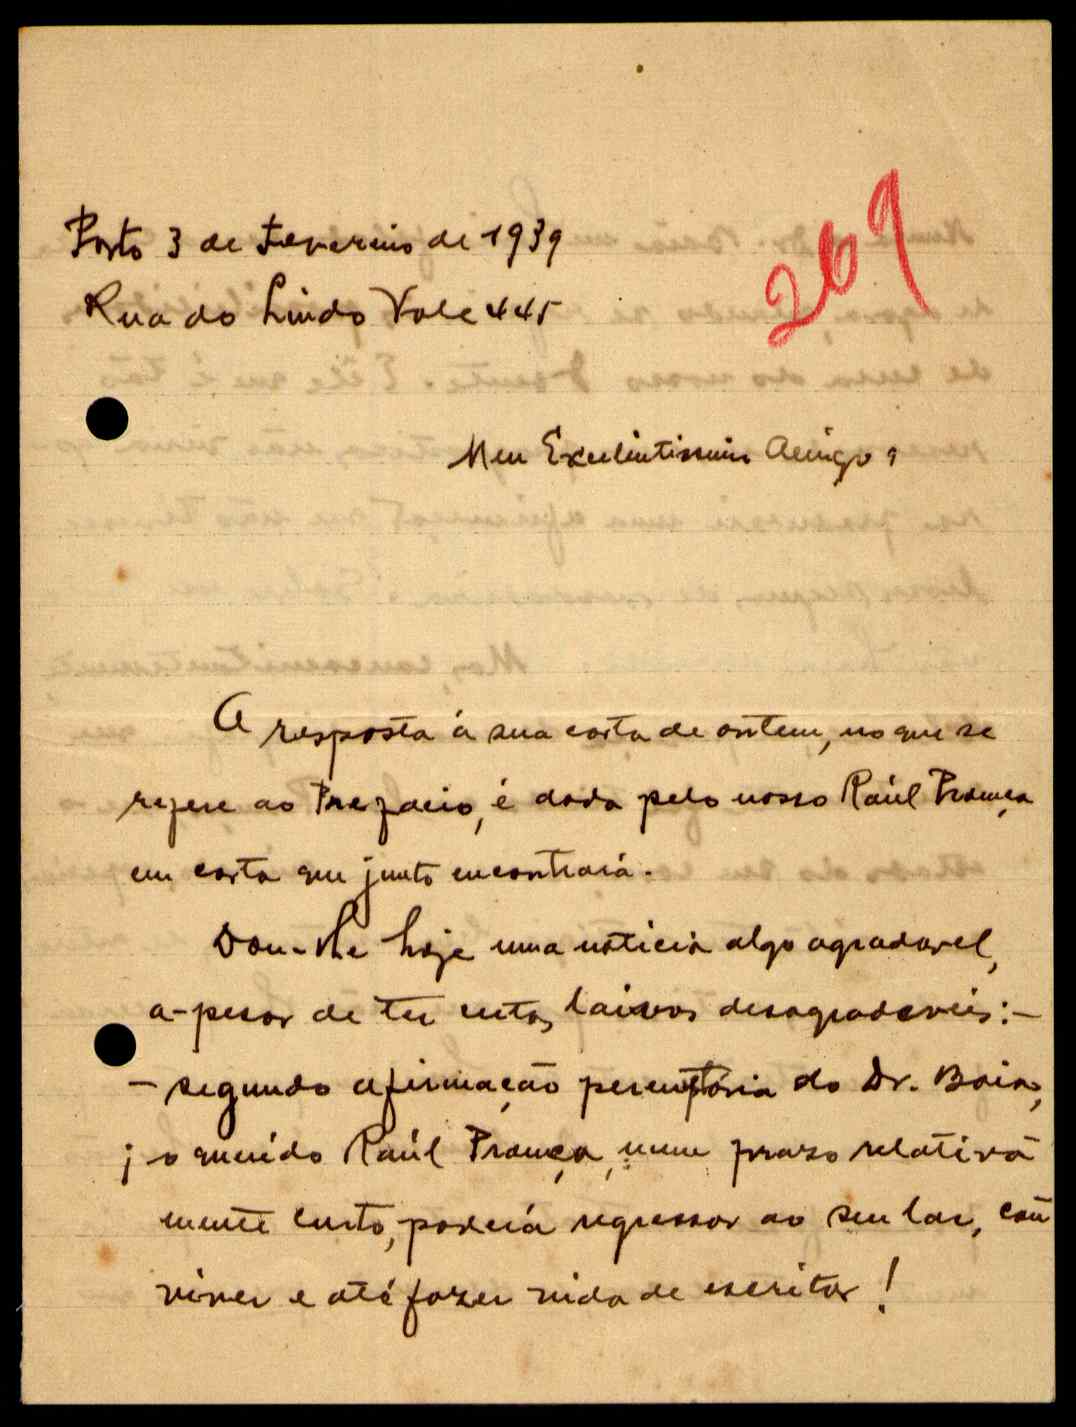 Porto 3 de Fevereiro de 1939
Rua do Lindo Vale 445
269
Meu Excelentissimo Amigo:
A resposta á sua carta de ontem, no que se
refere ao Prefacio, é dada pelo nosso Raúl Proença
em carta que junto encontrará.
Dou-lhe hoje uma noticia algo agradavel,
a-pesar de ter estas laivos desagradaveis:-
- segundo afirmação peremptória do Dr.
o querido Raúl Proença, num prazo relativa
mente curto, poderá regressar ao seu lar, con
viver e até fazer vida de escritor!